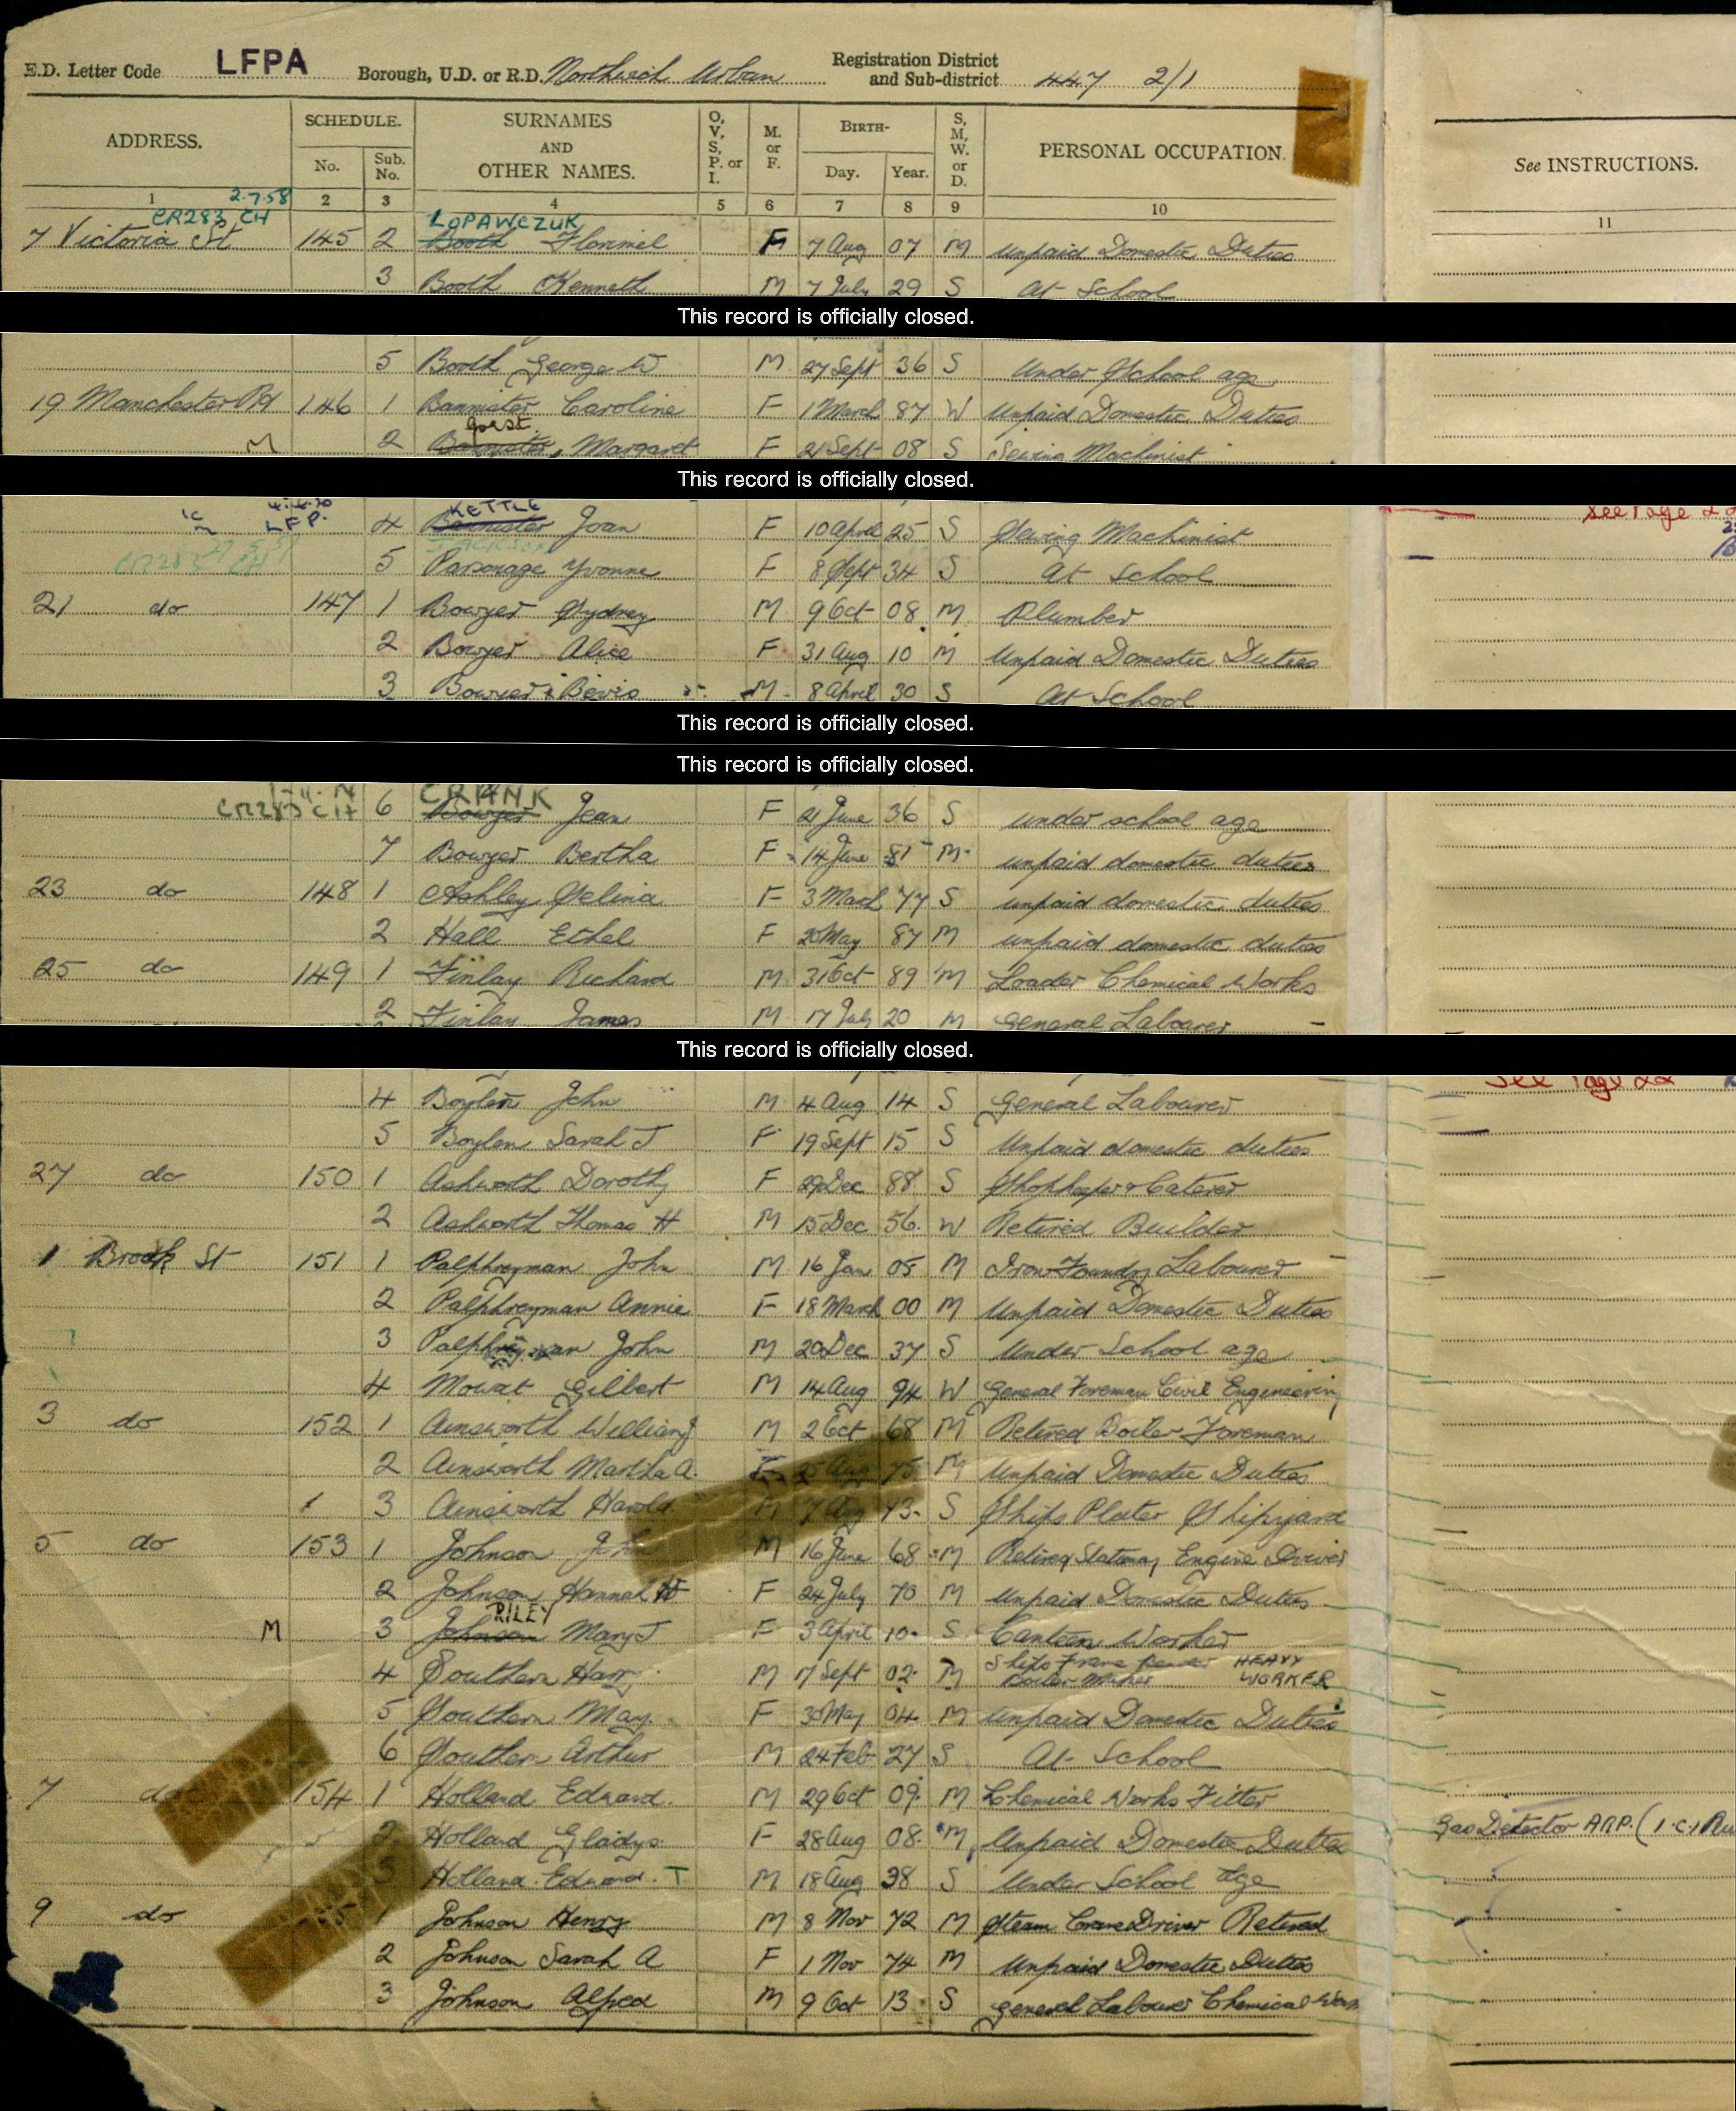 E.D. Letter Code LFPA Borough, U.D. or R.D. Northwich Urban Registration District and Sub-district 447 2/1
ADDRESS. SCHEDULE. No. Sub. No. SURNAMES AND OTHER NAMES. O, V, S, P. or I. M. or F. BIRTH- Day. Year. S, M, W. or D. PERSONAL OCCUPATION. See INSTRUCTIONS.
1 2 3 4 5 6 7 8 9 10 11
2.7.58
CR283 CH LOPAWCZUK
7 Victoria St 145 2 Booth Florimel F 7 Aug 07 M Unpaid Domestic Duties
3 Booth Kenneth M 7 July 29 S At School
This record is officially closed.
5 Booth George W M 27 Sept 36 S Under School age
19 Manchester Rd 146 1 Bannister Caroline F 1 March 87 W Unpaid Domestic Duties
M 2 Bannister Margaret F 21 Sept 08 S Sewing Machinist
This record is officially closed.
LFP. KETTLE See Page 22
4 Bannister Joan F 10 April 25 S Sewing Machinist
CR283 CH JACKSON
5 Parsonage Yvonne F 8 Sept 34 S At School
21 do 147 1 Bowyer Sydney M 9 Oct 08 M Plumber
2 Bowyer Alice F 31 Aug 10 M Unpaid Domestic Duties
3 Bowyer Bevis M 8 April 30 S At School
This record is officially closed.
This record is officially closed.
CR283 CH CRANK
6 Bowyer Jean F 21 June 36 S under school age
7 Bowyer Bertha F 14 June 81 M unpaid domestic duties
23 do 148 1 Ashley Selina F 3 Mach 77 S unpaid domestic duties
2 Hall Ethel F 20 May 87 M unpaid domestic duties
25 do 149 1 Finlay Richard M 31 Oct 89 M Loader Chemical Works
2 Finlay James M 17 July 20 M General Labourer
This record is officially closed.
See Page 22
4 Boylen John M 4 Aug 14 S General Labourer
5 Boylen Sarah J F 19 Sept 15 S Unpaid domestic duties
27 do 150 1 Ashworth Dorothy F 29 Dec 88 S Shopkeeper & Caterer
2 Ashworth Thomas H M 15 Dec 56 W Retired Builder
1 Brook St 151 1 Palphreyman John M 16 Jan 05 M Iron Foundry Labourer
2 Palphreyman Annie F 18 March 00 M Unpaid Domestic Duties
3 Palphreyman John M 20 Dec 37 S Under School age
4 Mowat Gilbert M 14 Aug 94 W General Foreman Civil Engineering
3 do 152 1 Ainsworth William J M 2 Oct 68 M Retired Boiler Foreman
2 Ainsworth Martha A. F 25 Aug 75 M Unpaid Domestic Duties
3 Ainsworth Harold M 7 Aug 13 S Ships Plater Shipyard
5 do 153 1 Johnson John M 16 June 68 M Retired Stationary Engine Driver
2 Johnson Hannah F 24 July 70 M Unpaid Domestic Duties
RILEY
M 3 Johnson Mary J F 3 April 10 S Canteen Worker
4 Southern Harry M 17 Sept 02 M Ships Frame Bender Boiler Maker HEAVY WORKER
5 Southern May F 30 May 04 M Unpaid Domestic Duties
6 Southern Arthur M 24 Feb 27 S At School
7 do 154 1 Holland Edward M 29 Oct 09 M Chemical Works Fitter
2 Holland Gladys F 28 Aug 08 M Unpaid Domestic Duties Gas Detector ARP. (I.C.I
3 Holland Edward T M 18 Aug 38 S Under School Age
9 do 1 Johnson Henry M 8 Nov 72 M Steam Crane Driver Retired
2 Johnson Sarah A F 1 Nov 74 M Unpaid Domestic Duties
3 Johnson Alfred M 9 Oct 13 S General Labourer Chemical Works